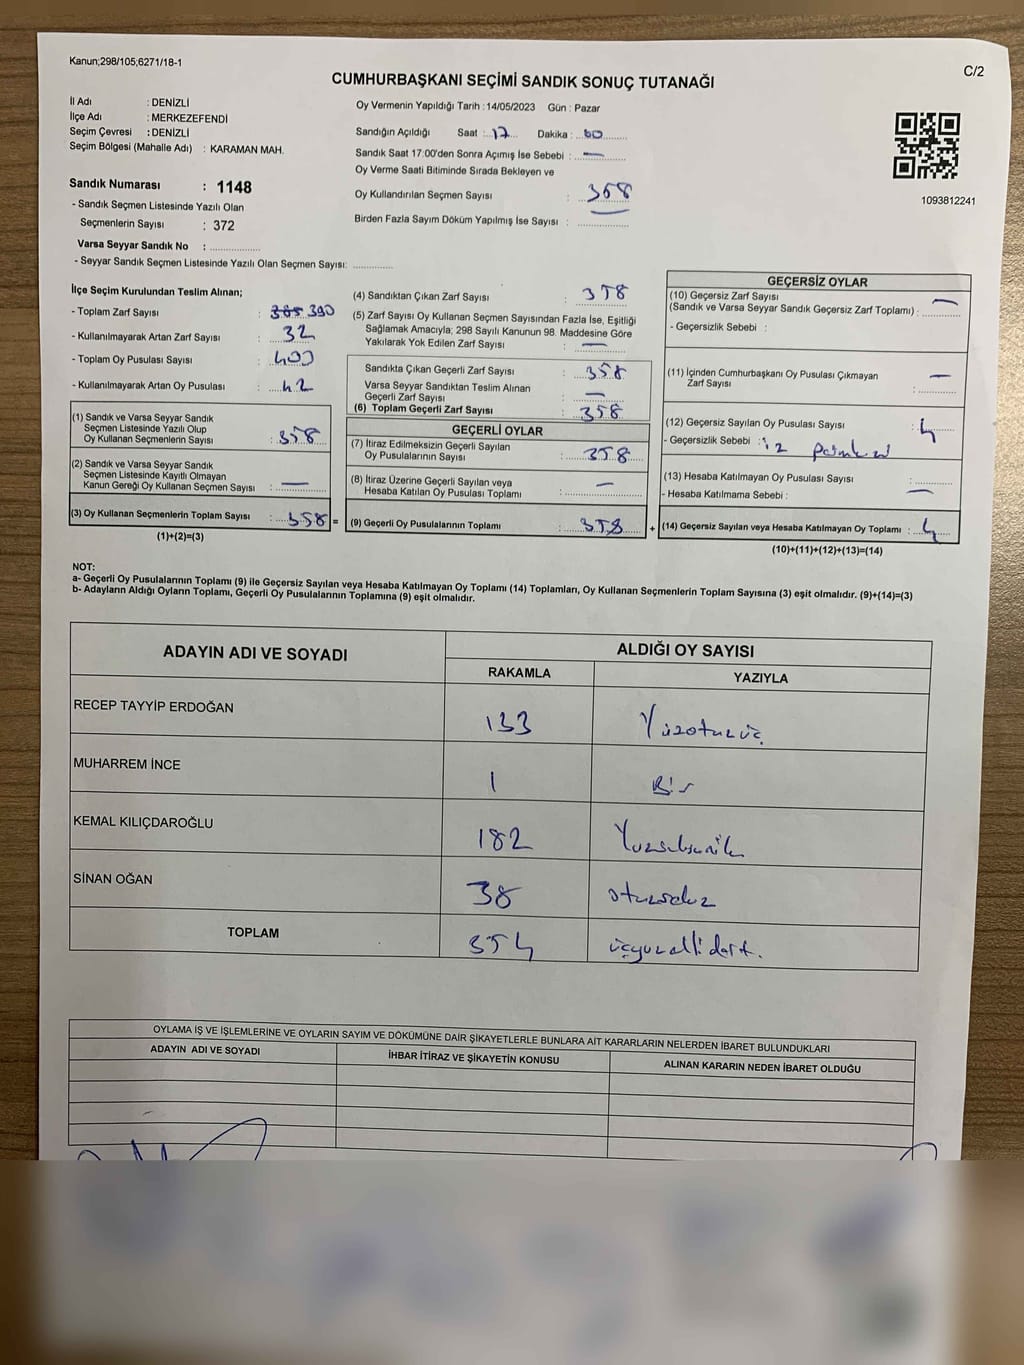 Kanun;298/105;6271/18-1
C/2
CUMHURBAŞKANI SEÇİMİ SANDIK SONUÇ TUTANAĞI
İl Adı : DENİZLİ
İlçe Adı : MERKEZEFENDİ
Seçim Çevresi : DENİZLİ
Seçim Bölgesi (Mahalle Adı) : KARAMAN MAH.
Sandık Numarası : 1148
- Sandık Seçmen Listesinde Yazılı Olan
Seçmenlerin Sayısı : 372
Varsa Seyyar Sandık No :
- Seyyar Sandık Seçmen Listesinde Yazılı Olan Seçmen Sayısı:
Oy Vermenin Yapıldığı Tarih :14/05/2023 Gün : Pazar
Sandığın Açıldığı Saat : 17 Dakika : 00
Sandık Saat 17:00'den Sonra Açımış İse Sebebi : —
Oy Verme Saati Bitiminde Sırada Bekleyen ve
Oy Kullandırılan Seçmen Sayısı : 358
Birden Fazla Sayım Döküm Yapılmış İse Sayısı :
1093812241
İlçe Seçim Kurulundan Teslim Alınan;
- Toplam Zarf Sayısı : 385 390
- Kullanılmayarak Artan Zarf Sayısı : 32
- Toplam Oy Pusulası Sayısı : 400
- Kullanılmayarak Artan Oy Pusulası : 42
(1) Sandık ve Varsa Seyyar Sandık
Seçmen Listesinde Yazılı Olup
Oy Kullanan Seçmenlerin Sayısı : 358
(2) Sandık ve Varsa Seyyar Sandık
Seçmen Listesinde Kayıtlı Olmayan
Kanun Gereği Oy Kullanan Seçmen Sayısı : —
(3) Oy Kullanan Seçmenlerin Toplam Sayısı : 358 =
(1)+(2)=(3)
(4) Sandıktan Çıkan Zarf Sayısı : 358
(5) Zarf Sayısı Oy Kullanan Seçmen Sayısından Fazla İse, Eşitliği
Sağlamak Amacıyla; 298 Sayılı Kanunun 98. Maddesine Göre
Yakılarak Yok Edilen Zarf Sayısı : —
Sandıkta Çıkan Geçerli Zarf Sayısı : 358
Varsa Seyyar Sandıktan Teslim Alınan
Geçerli Zarf Sayısı : —
(6) Toplam Geçerli Zarf Sayısı : 358
GEÇERLİ OYLAR
(7) İtiraz Edilmeksizin Geçerli Sayılan
Oy Pusulalarının Sayısı : 358
(8) İtiraz Üzerine Geçerli Sayılan veya
Hesaba Katılan Oy Pusulası Toplamı : —
(9) Geçerli Oy Pusulalarının Toplamı : 358 +
GEÇERSİZ OYLAR
(10) Geçersiz Zarf Sayısı
(Sandık ve Varsa Seyyar Sandık Geçersiz Zarf Toplamı) : —
- Geçersizlik Sebebi :
(11) İçinden Cumhurbaşkanı Oy Pusulası Çıkmayan
Zarf Sayısı : —
(12) Geçersiz Sayılan Oy Pusulası Sayısı : 4
- Geçersizlik Sebebi :
(13) Hesaba Katılmayan Oy Pusulası Sayısı :
- Hesaba Katılmama Sebebi : —
(14) Geçersiz Sayılan veya Hesaba Katılmayan Oy Toplamı : 4
(10)+(11)+(12)+(13)=(14)
NOT:
a- Geçerli Oy Pusulalarının Toplamı (9) ile Geçersiz Sayılan veya Hesaba Katılmayan Oy Toplamı (14) Toplamları, Oy Kullanan Seçmenlerin Toplam Sayısına (3) eşit olmalıdır. (9)+(14)=(3)
b- Adayların Aldığı Oyların Toplamı, Geçerli Oy Pusulalarının Toplamına (9) eşit olmalıdır.
ADAYIN ADI VE SOYADI ALDIĞI OY SAYISI
RAKAMLA YAZIYLA
RECEP TAYYİP ERDOĞAN 133 Yüzotuzüç
MUHARREM İNCE 1 Bir
KEMAL KILIÇDAROĞLU 182 Yuzseksenik
SİNAN OĞAN 38 otuzsekız
TOPLAM 354 üçyuzellidört.
OYLAMA İŞ VE İŞLEMLERİNE VE OYLARIN SAYIM VE DÖKÜMÜNE DAİR ŞİKAYETLERLE BUNLARA AİT KARARLARIN NELERDEN İBARET BULUNDUKLARI
ADAYIN ADI VE SOYADI İHBAR İTİRAZ VE ŞİKAYETİN KONUSU ALINAN KARARIN NEDEN İBARET OLDUĞU